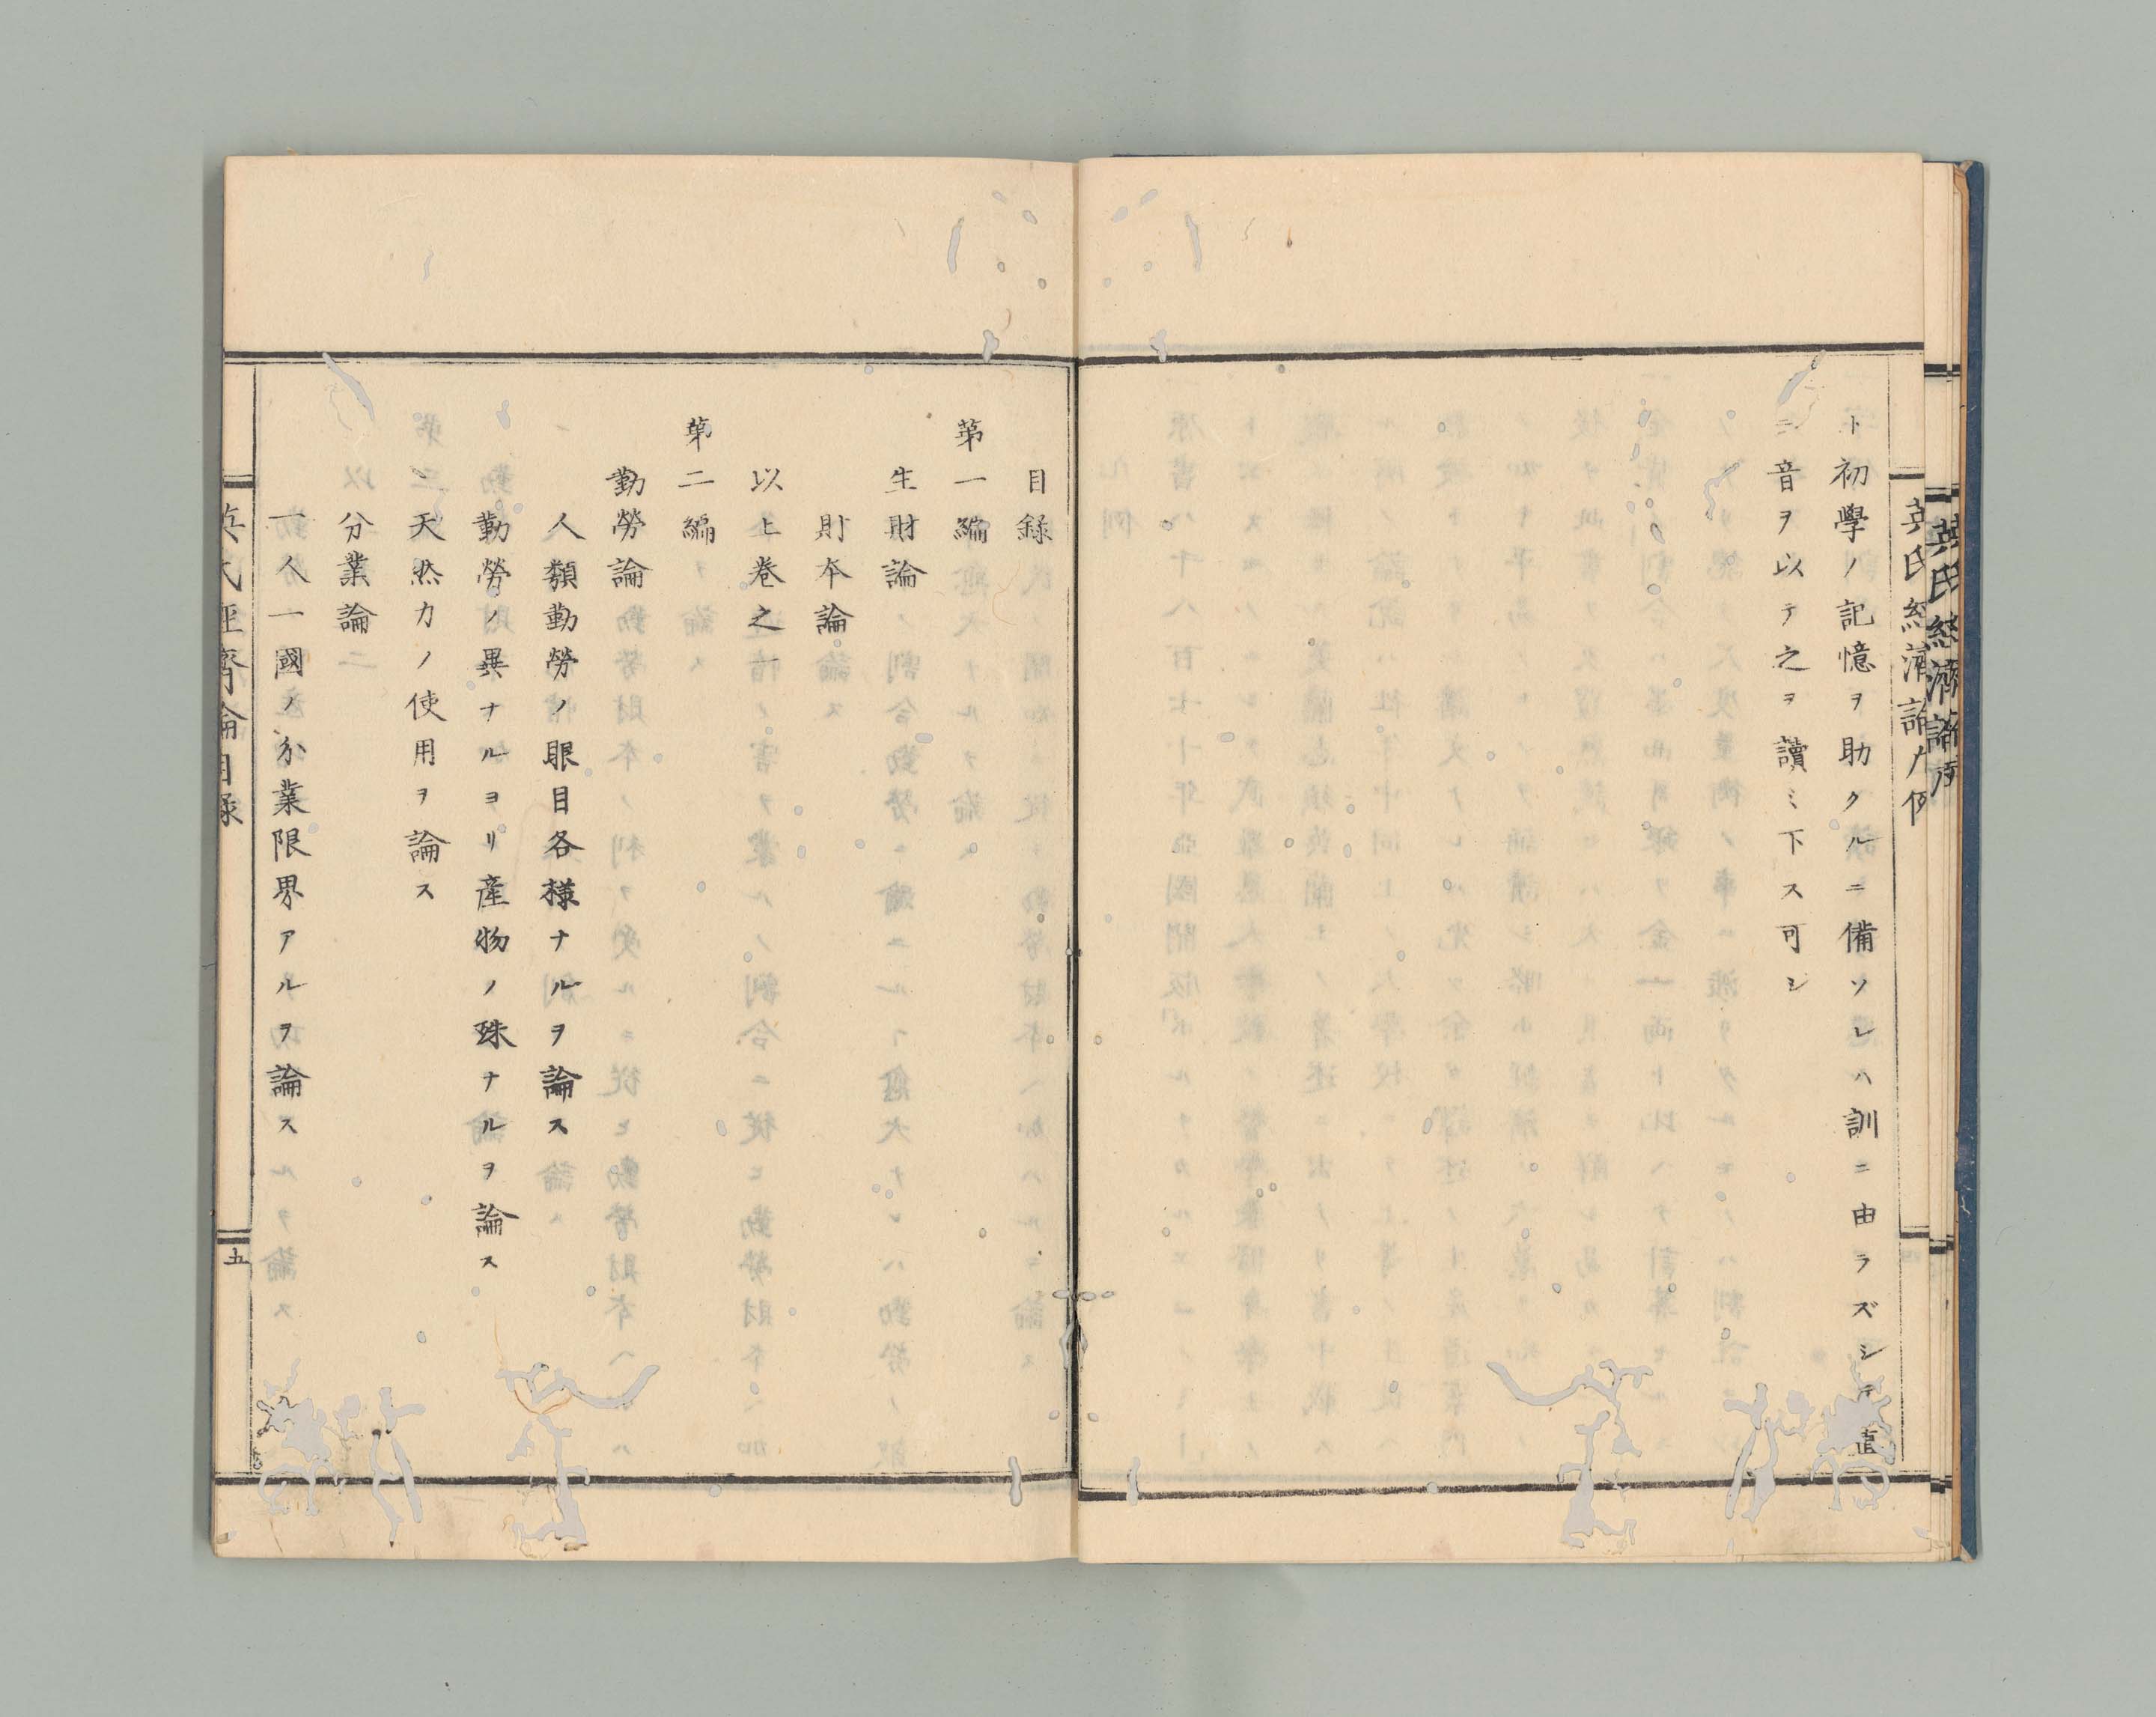 ト初學ノ記憶ヲ助クルニ備ソレハ訓ニ由ラズシテ直
ニ音ヲ以テ之ヲ讀ミ下ス可シ
目録
第一編
生財論
財本論
以上卷之一
第二編
勤勞論
人類勤勞ノ眼目各樣ナルヲ論ス
勤勞ノ異ナルヨリ產物ノ殊ナルヲ論ス
天然力ノ使用ヲ論ス
分業論
一人一國ノ分業限界アルヲ論ス
英氏經濟論目録
五